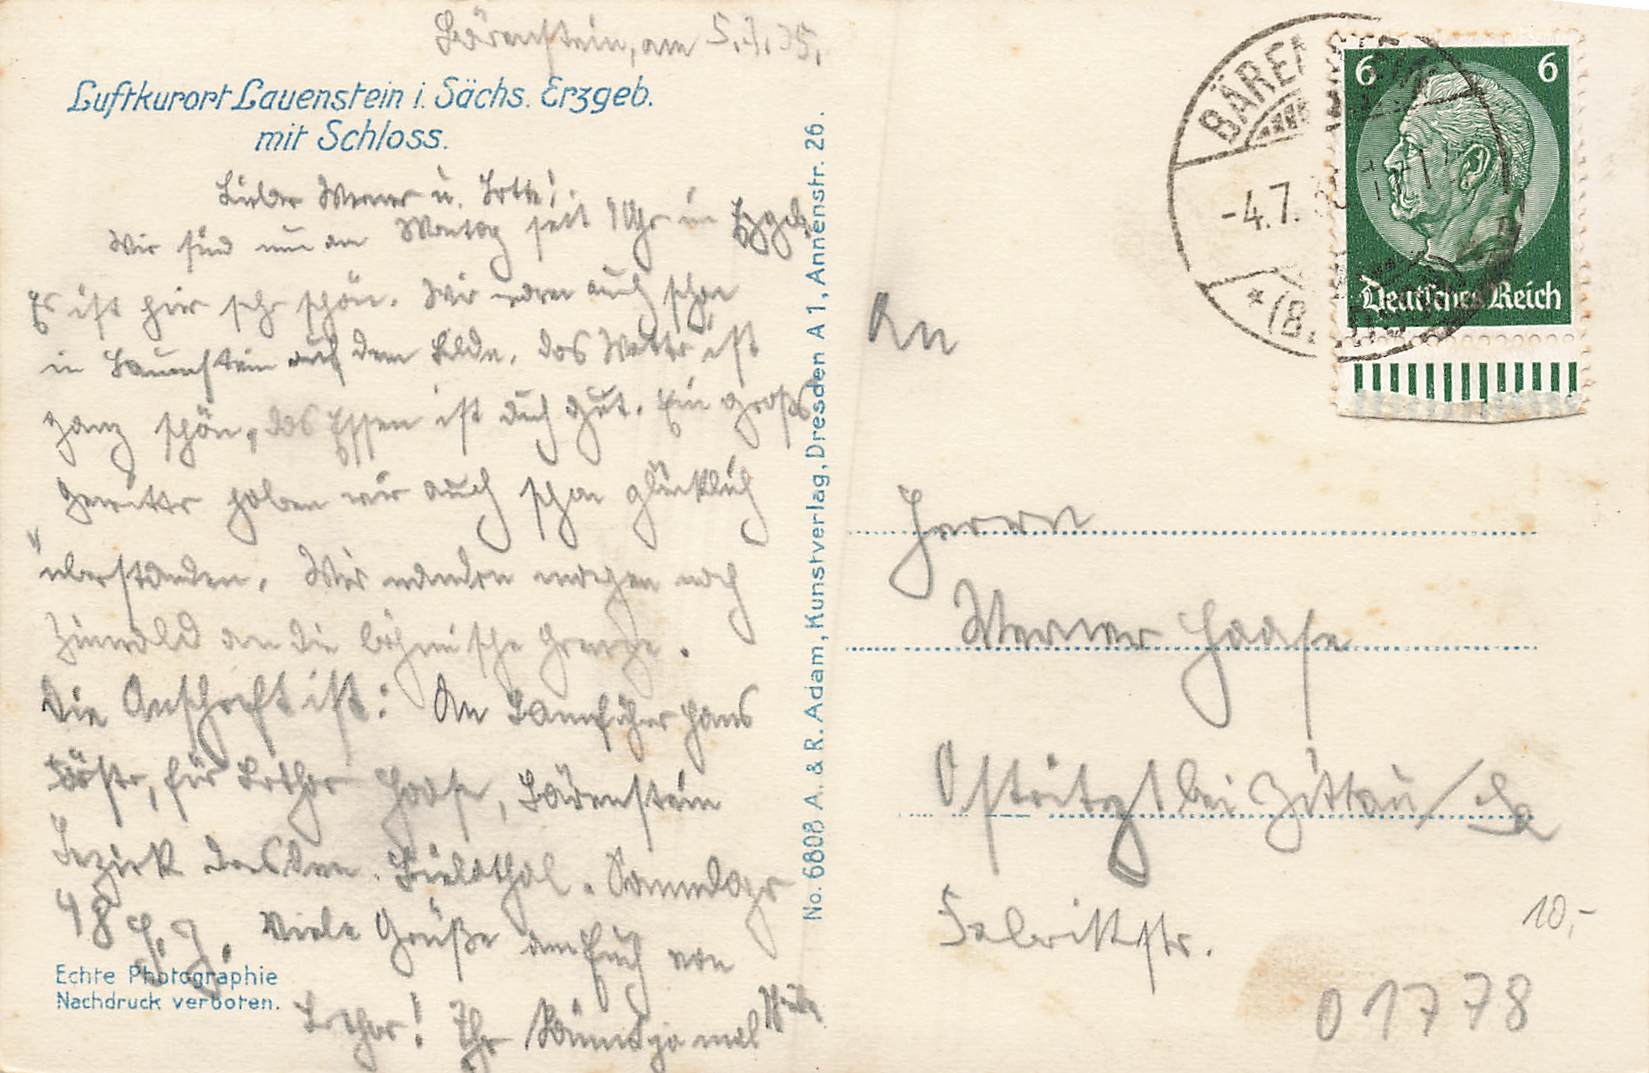 Bärenstein, am 5.7.35.
Luftkurort Lauenstein i. Sächs. Erzgeb.
mit Schloss.
Lieber Werner u. Lotte!
Wir sind nun am Montag seit 1 Uhr in Erzgeb.
Es ist hier sehr schön. Wir waren auch schon
in Lauenstein auf dem Bilde. Das Wetter ist
ganz schön, das Essen ist auch gut. Ein großes
Gewitter haben wir auch schon glücklich
überstanden. Wir wandern morgen nach
Zinnwald an die böhmische Grenze.
Die Anschrift ist: An Hans
Förster, für Lothar Haase, Bärenstein
Bezirk Dresden. Bielathal.
48 Viele Grüße an Euch von
Lothar! Ihr ja mal
Echte Photographie
Nachdruck verboten.
No. 6808 A. & R. Adam, Kunstverlag, Dresden A 1, Annenstr. 26.
BÄRENSTEIN
-4.7.
* (B.
6 6
Deutsches Reich
An
Herrn
Werner Haase
Ostritz bei Zittau/Sa
Fabrikstr.
10,-
01778